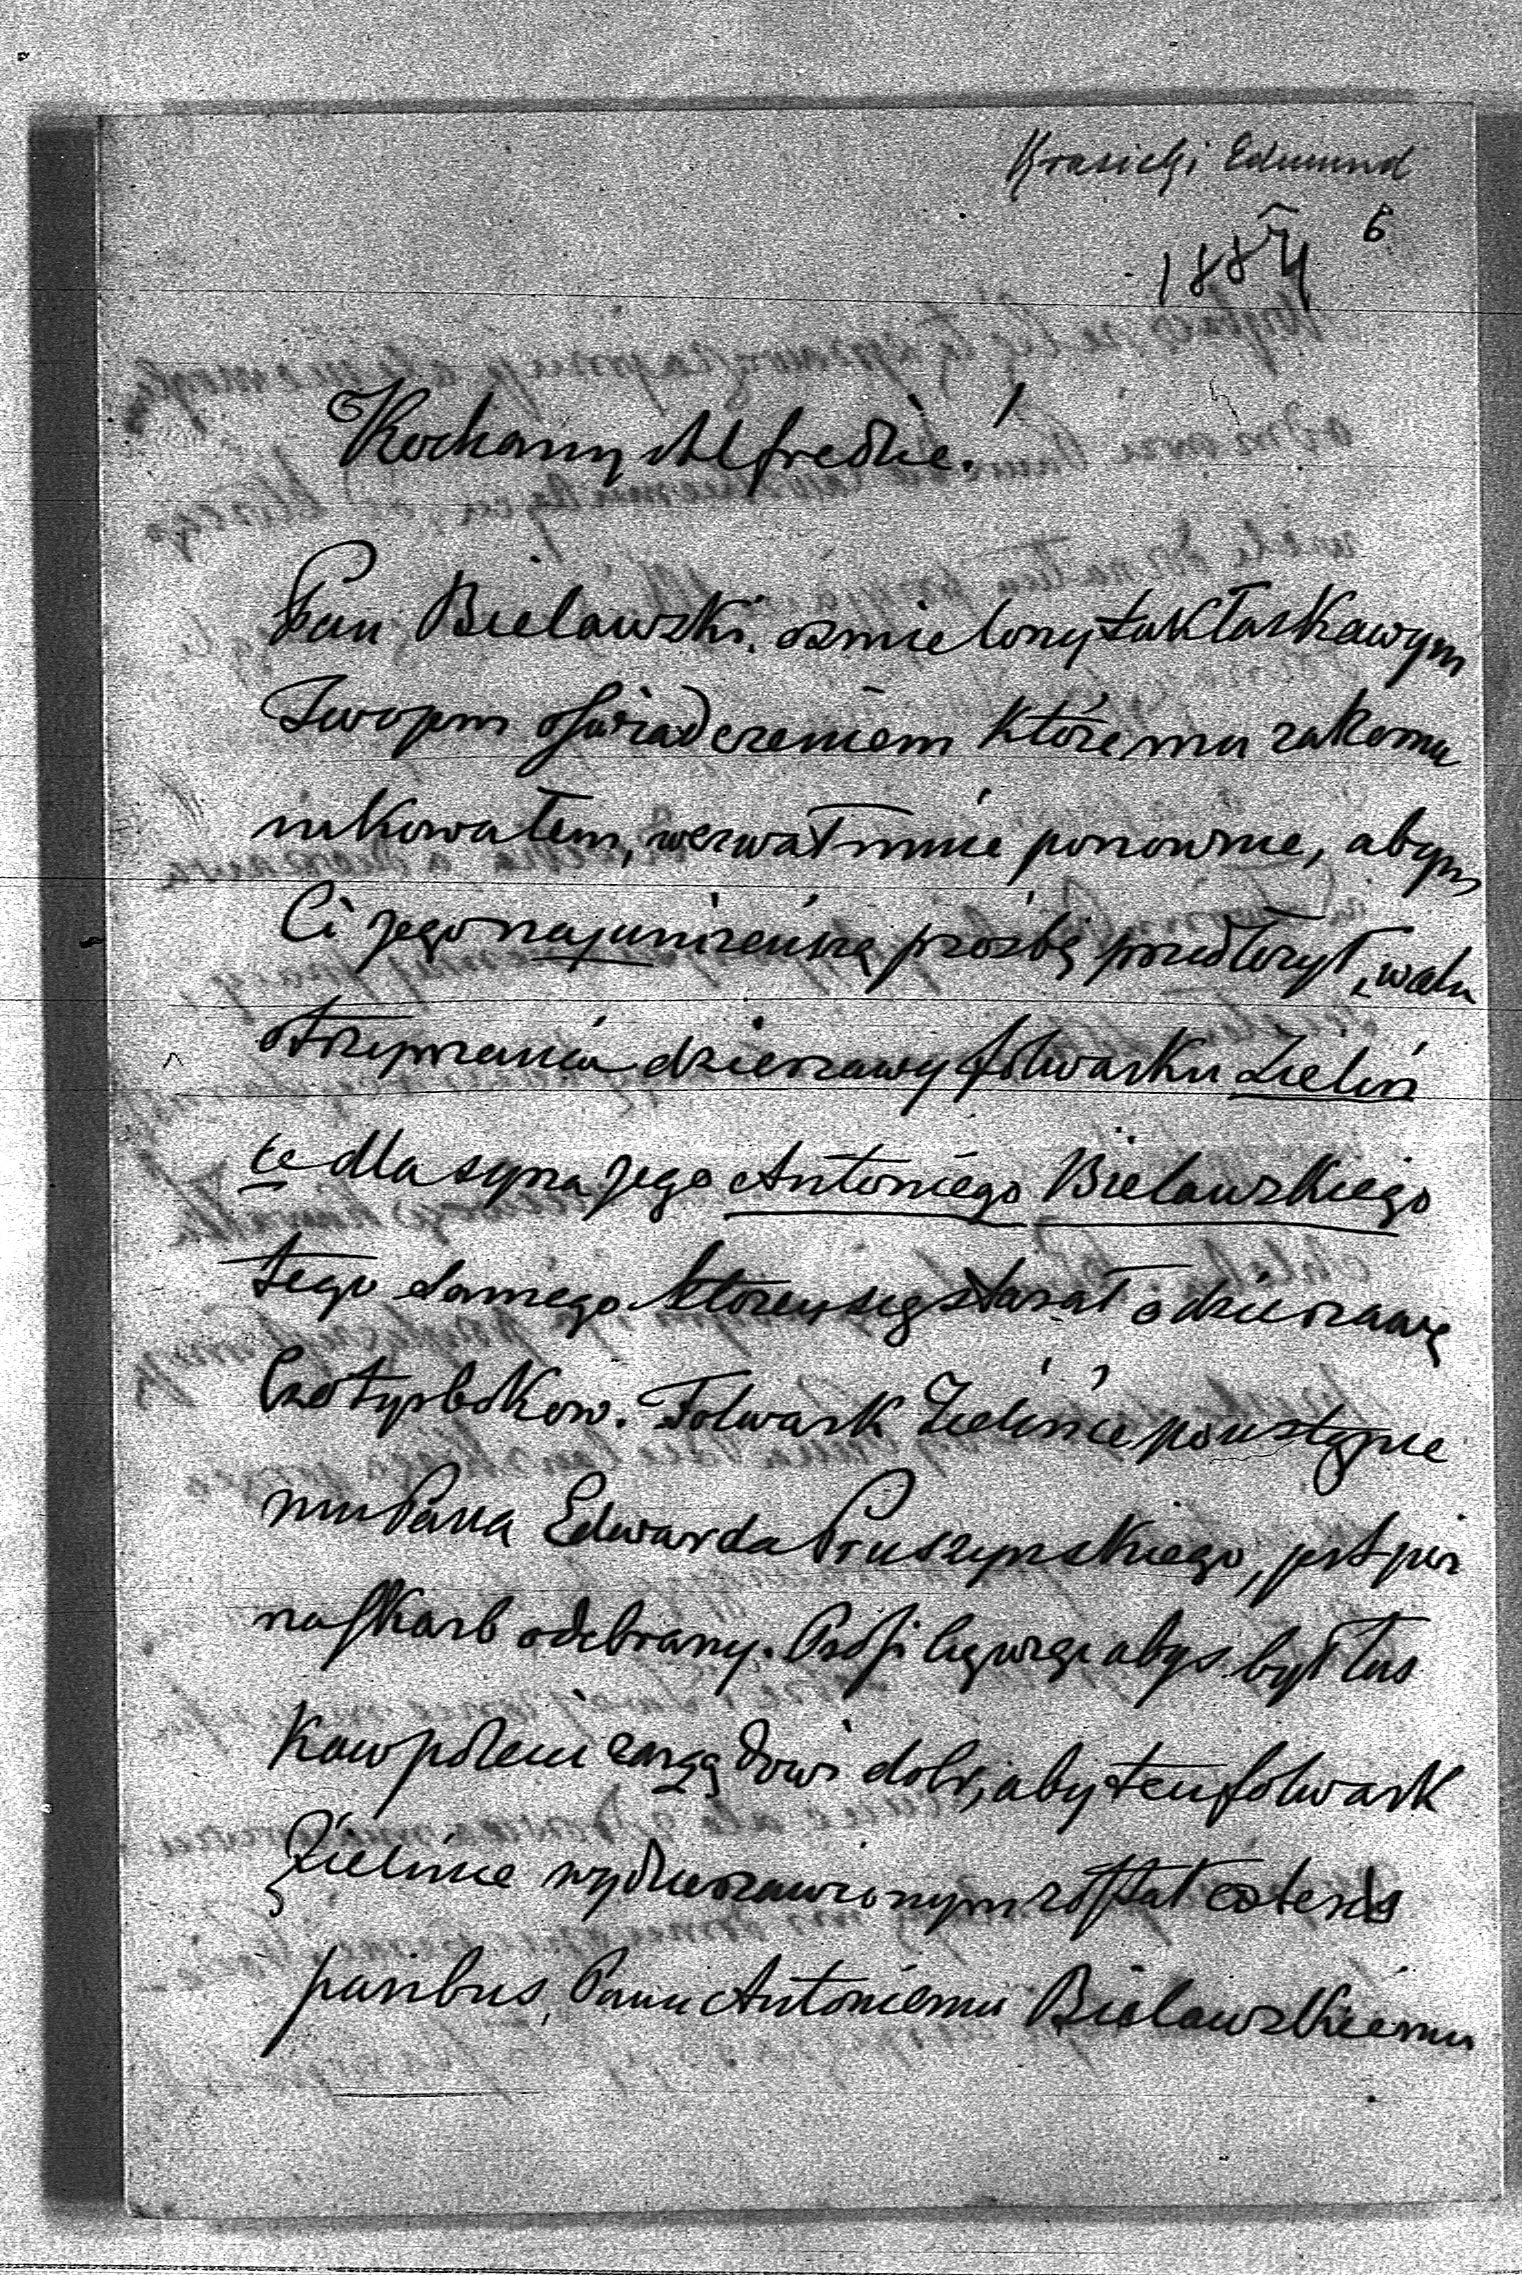 Krasicki Edmund
6
1884
Kochany Alfredzie!
Pan Bielawski, ośmielony tak łaskawym
Twojem oświadczeniem które mu zakomu
nikowałem, wezwał mnie ponownie, abym
Ci jego najuniżeńszą prośbę przedłożył, wzglę
otrzymania dzierzawy folwarku Zieliń
ce dla syna jego Antoniego Bielawskiego
tego samego który się starał o dzierzawę
Czołtybokow. Folwark Zielińce po ustąpie
niu Pana Edwarda Pruszynskiego, jest już
na skarb odebrany. Prosi Cię więc abyś był łas
kaw polecić zarządowi dobr, aby ten folwark
Zielińce wydzierzawionym został ceteris
paribus, Panu Antoniemu Bielawskiemu